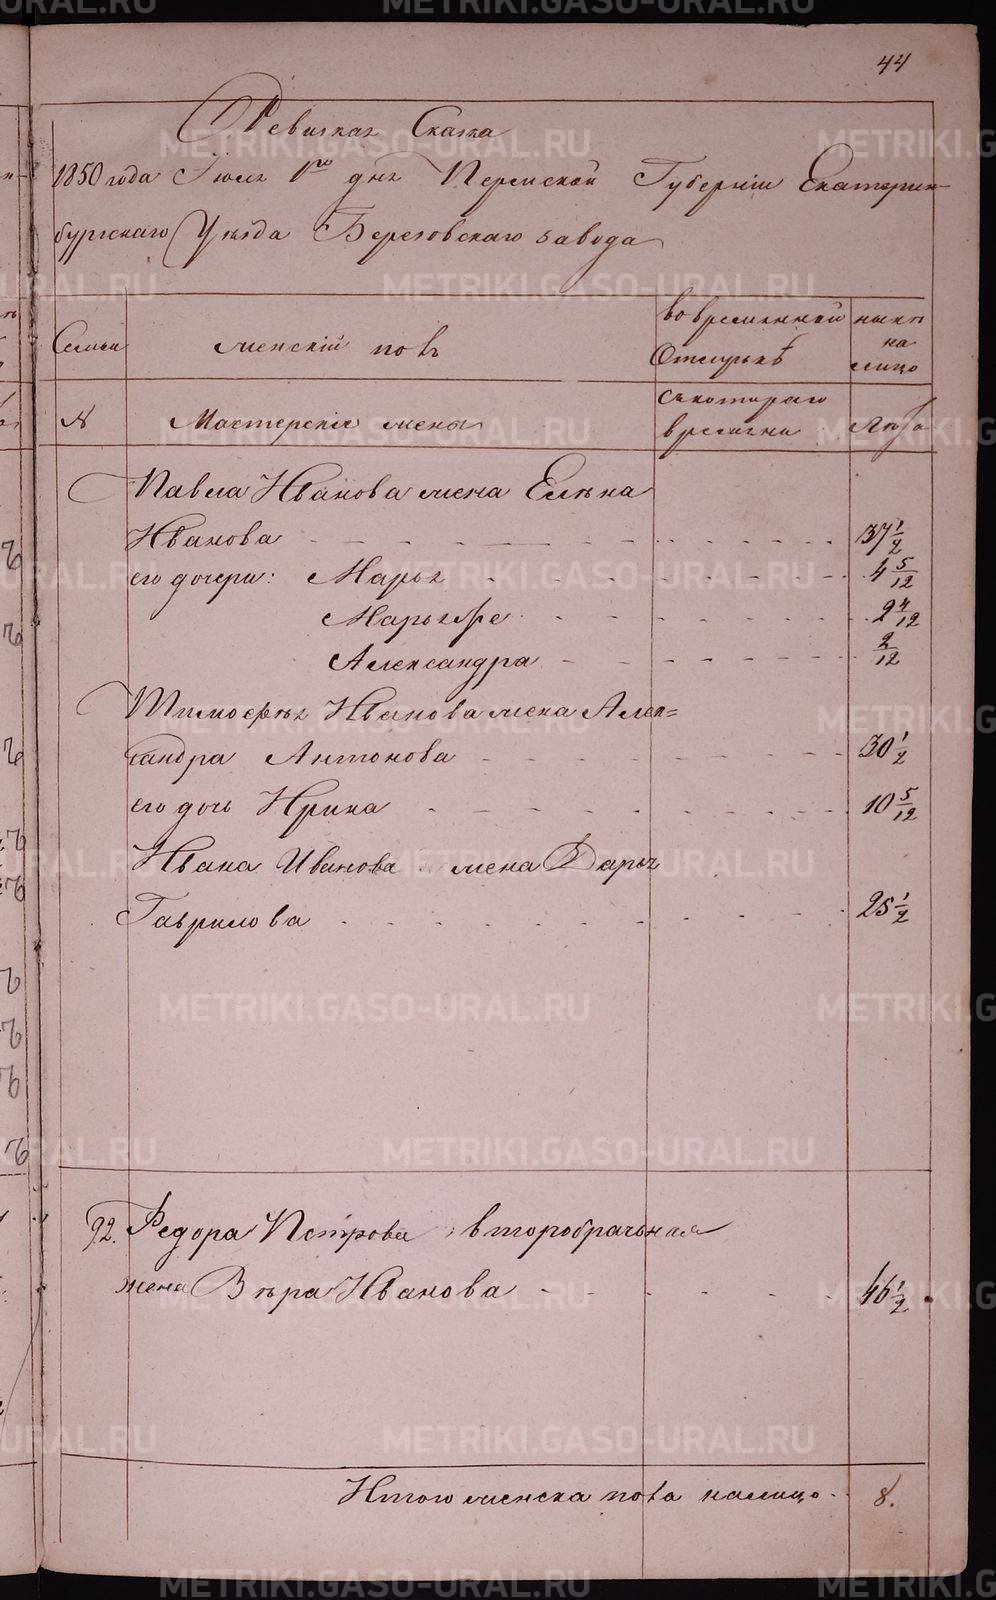 44
Ревизская Сказка
1850 года Июля 1го дня Пермской Губернии Екатерин-
бургскаго Уѣзда Березовскаго завода
Семьи
женскій полъ
во временной
Отлучкѣ
нынѣ
на
лицо
№
Мастерскіе жены
съкотораго
времени
Лѣта
Павла Иванова жена Елѣна
Иванова 37 1/2
его дочери: Марья 4 5/12
Марья же 2 4/12
Александра 2/12
Тимофѣя Иванова жена Алек=
сандра Антонова 30 1/2
его дочь Ирина 10 5/12
Ивана Иванова жена Дарья
Гаврилова 25 1/2
92. Федора Петрова второбрачная
жена Вѣра Иванова 46 1/2
Итого женска пола налицо 8.
METRIKI.GASO-URAL.RU